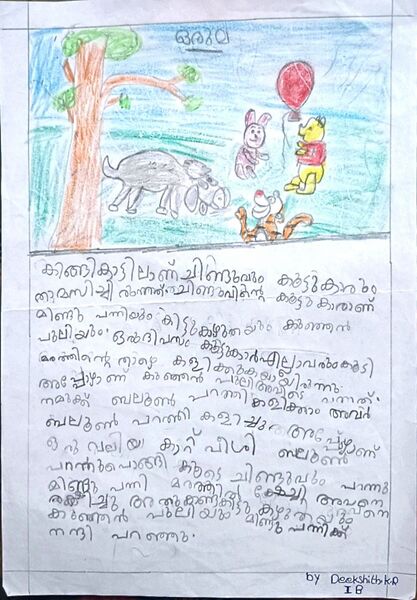 ഒരുമ
കിങ്ങികാട്ടിലാണ് ചിണ്ടുവും കൂട്ടുകാരും
താമസിച്ചിരുന്നത് ചിണ്ടുവിന്റെ കൂട്ടുകാരാണ്
മിണ്ടു പന്നിയും കിട്ടുകഴുതയും കുഞ്ഞൻ
പുലിയും. ഒരുദിവസം കൂട്ടുകാർഎല്ലാവരുംകൂടി
മരത്തിന്റെ താഴെ കളിക്കുകയായിരുന്നു
അപ്പോഴാണ് കുഞ്ഞൻ പുലിഅവിടെ വന്നത്.
നമുക്ക് ബലൂൺ പറത്തി കളിക്കാം അവർ
ബലൂൺ പറത്തി കളിച്ചു അപ്പോഴാണ്
ഒരു വലിയ കാറ്റ് വീശി ബലൂൺ
പറന്നുപൊങ്ങി കൂടെ ചിണ്ടുവും പറന്നു
മിണ്ടു പന്നി മരത്തിൽ അവനെ
രക്ഷിച്ചു
കുഞ്ഞൻ പുലിയും മിണ്ടു പന്നിക്ക്
നന്ദി പറഞ്ഞു.
by Deekshith K.P
I B